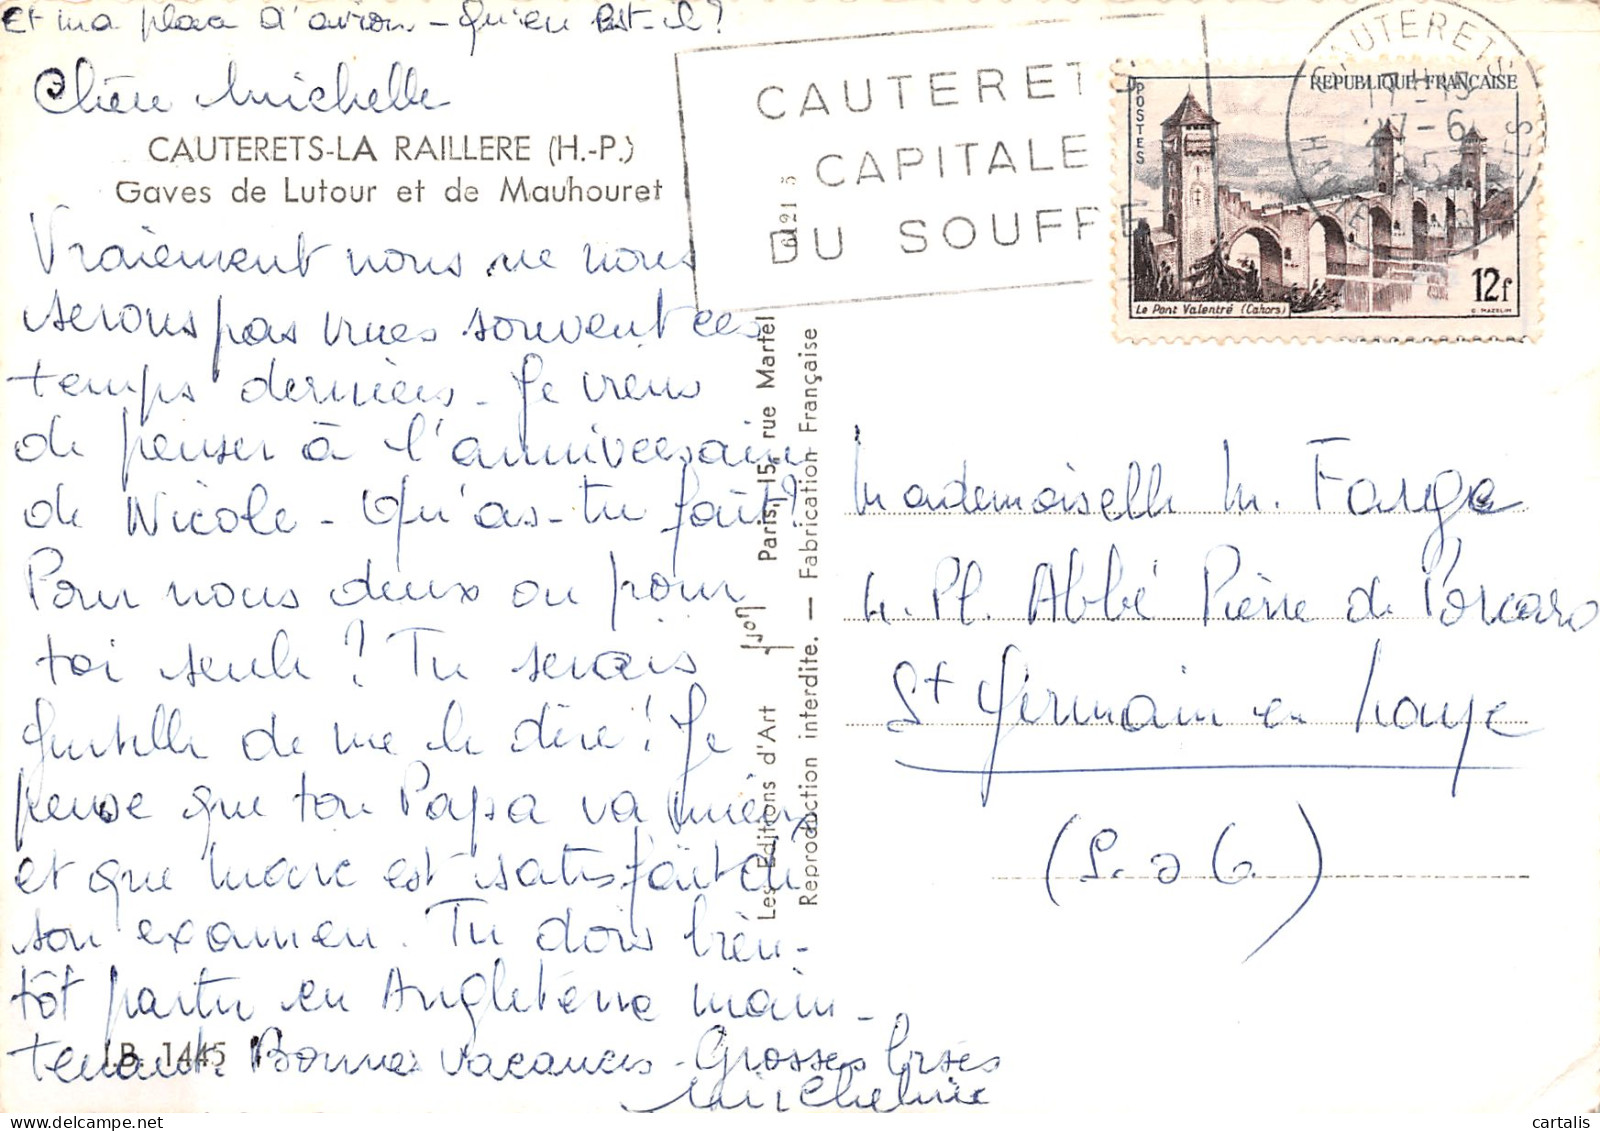 Et ma place d'avion - qu'en est-il?
Chère Michelle
CAUTERETS-LA RAILLERE (H.-P.)
Gaves de Lutour et de Mauhouret
Vraiement nous ne nous
serons pas vues souvent ces
temps derniers - Je viens
de penser à l'anniversaire
de Nicole - Qu'as-tu fait?
Pour nous deux ou pour
toi seule? Tu serais
gentille de me le dire! Je
pense que ton Papa va mieux
et que Marc est satisfait de
son examen. Tu dois bien-
tôt partir en Angleterre main-
tenant. Bonnes vacances - Grosses bises
Micheline
J.B. 1445
CAUTERETS
CAPITALE
DU SOUFRE
Les Editions d'Art Yvon Paris, 15, rue Martel
Reproduction interdite. — Fabrication Française
CAUTERETS
REPUBLIQUE FRANÇAISE
POSTES
Le Pont Valentré (Cahors)
12f
C. MAZELIN
Mademoiselle M. Farge
4. Pl. Abbé Pierre de Porcaro
St Germain en Laye
(S. & O.)
cartalis